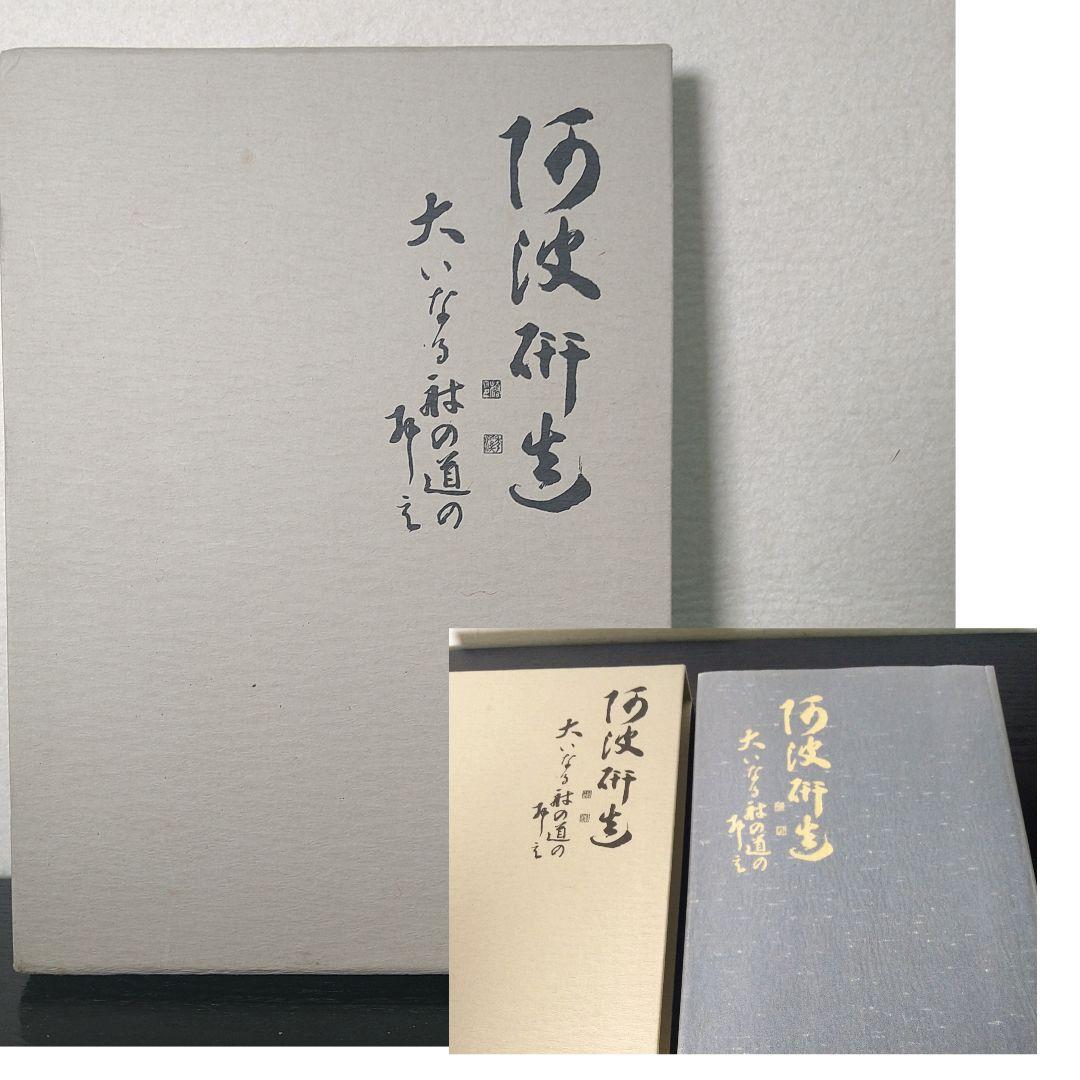 阿波研造
大いなる射の道の
教え
阿波研造
大いなる射の道の
教え
阿波研造
大いなる射の道の
教え